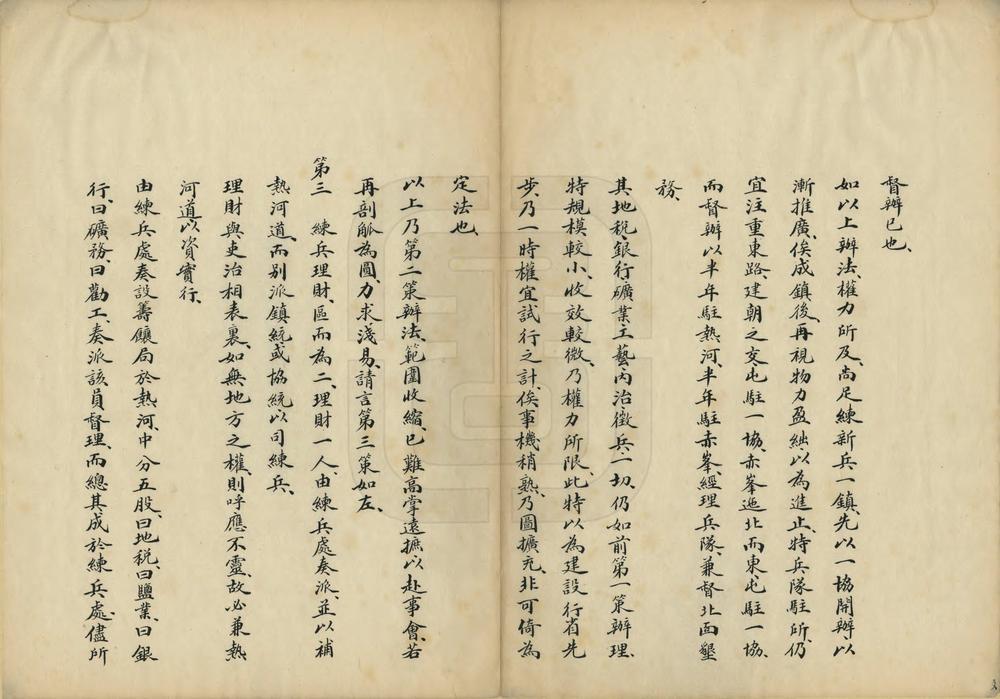 督辦已也、
如以上辦法、權力所及、尚足練新兵一鎮、先以一協開辦以
漸推廣、俟成鎮後、再視物力盈絀以為進止、特兵隊駐所、仍
宜注重東路、建朝之交屯駐一協、赤峯迤北而東屯駐一協、
而督辦以半年駐熱河、半年駐赤峯、經理兵隊、兼督北面墾
務、
其地稅銀行礦業工藝內治徵兵一切、仍如前第一策辦理、
特規模較小、收效較微、乃權力所限、此特以為建設行省先
步、乃一時權宜試行之計、俟事機稍熟、乃圖擴充、非可倚為
定法也、
以上乃第二策辦法、範圍收縮、已難高掌遠摭以赴事會、若
再剖觚為圓、力求淺易、請言第三策如左、
第三　練兵理財、區而為二、理財一人、由練兵處奏派、並以補
熱河道、而別派鎮統或協統以司練兵、
理財與吏治相表裏、如無地方之權、則呼應不靈、故必兼熱
河道以資實行、
由練兵處奏設籌餉局於熱河、中分五股、曰地稅、曰鹽業、曰銀
行、曰礦務、曰勸工、奏派該員督理、而總其成於練兵處、儘所